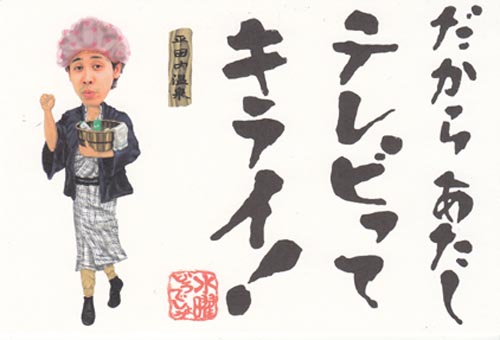 だからあたし
テレビって
キライ！
平田内温泉
水曜
どうでしょう